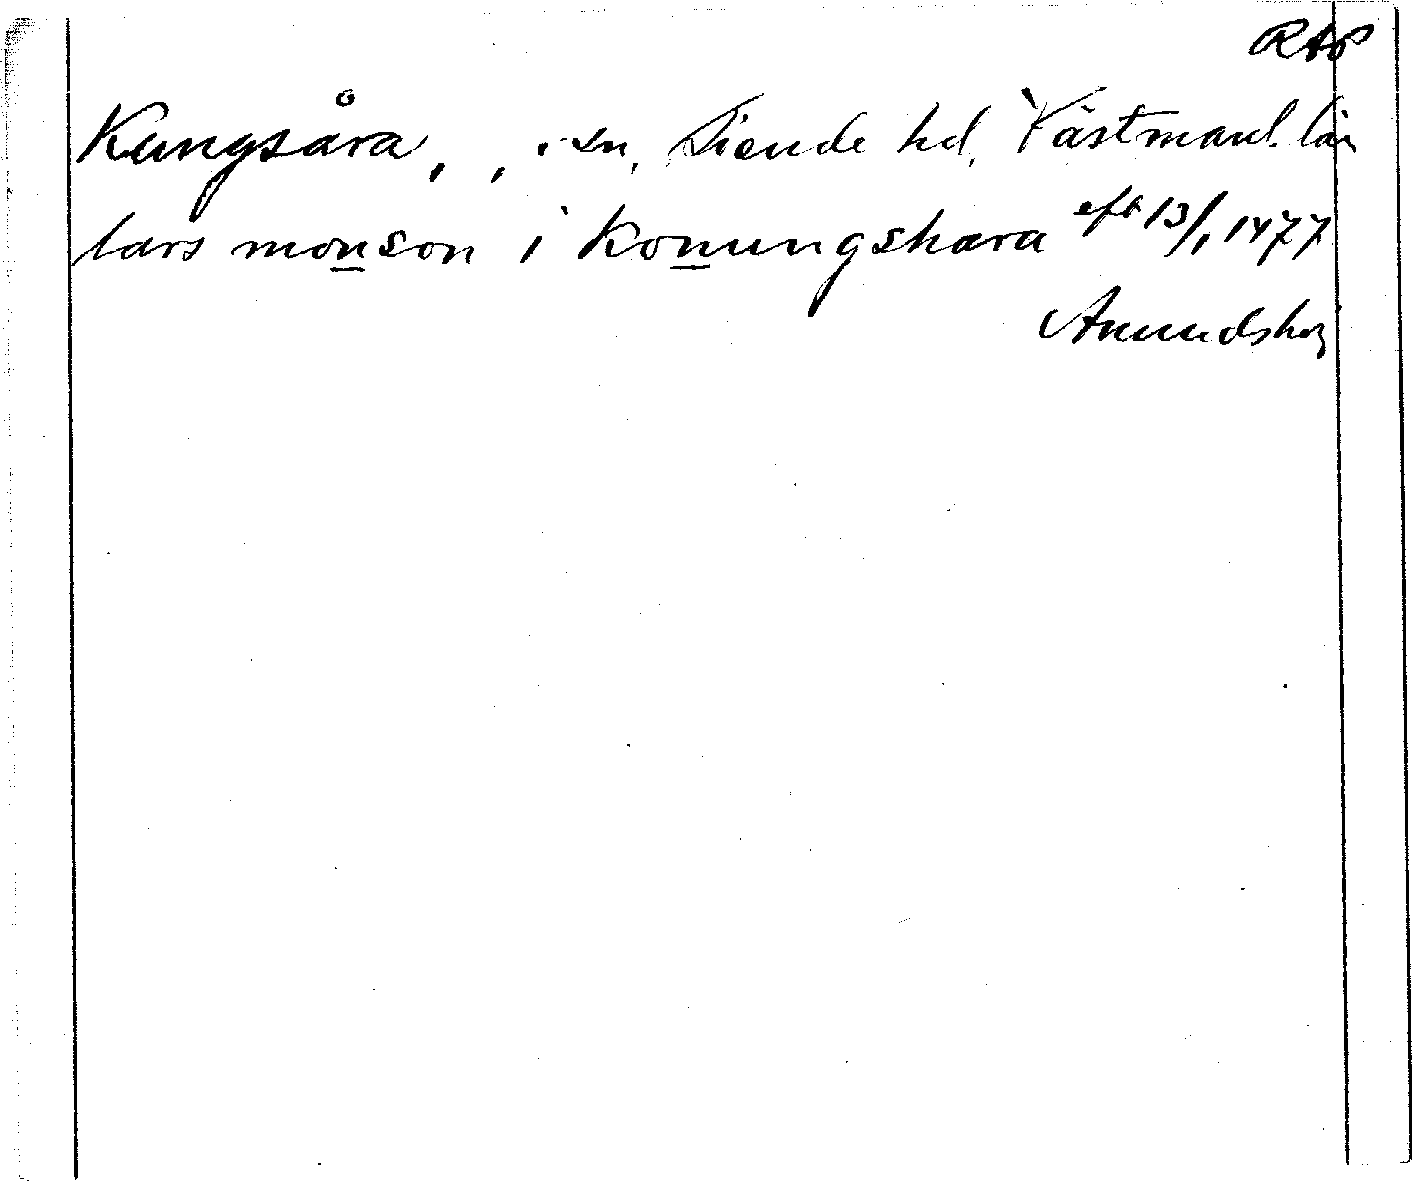 RAP
Kungsåra, , sn, Siende hd, Västmanl. län
lars monson i Konungshara eft 13/1 1477
Amundshög